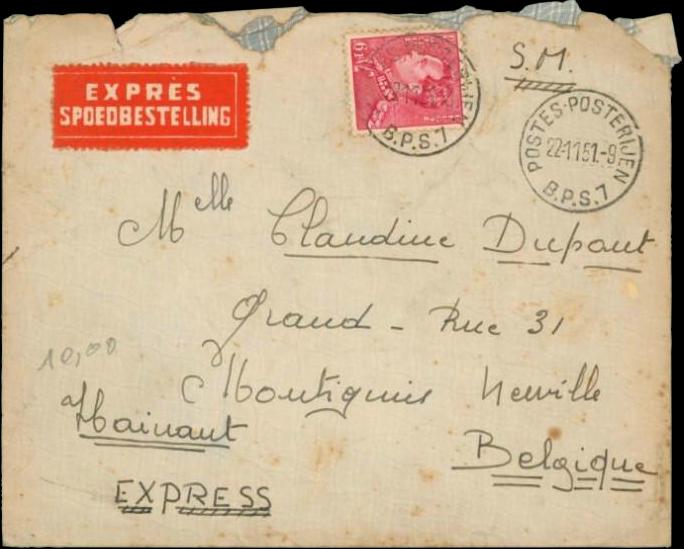 EXPRÈS
SPOEDBESTELLING
S.M.
B.P.S.7
POSTES-POSTERIJEN
22-11 51.-9
B.P.S.7
Melle Claudine Dupont
Grand - Rue 31
Montignies Neuville
10,00
Hainaut
Belgique
EXPRESS